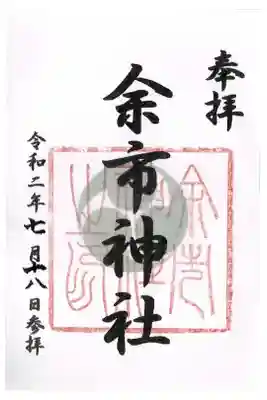 奉拝
余市神社
令和二年七月十八日参拝